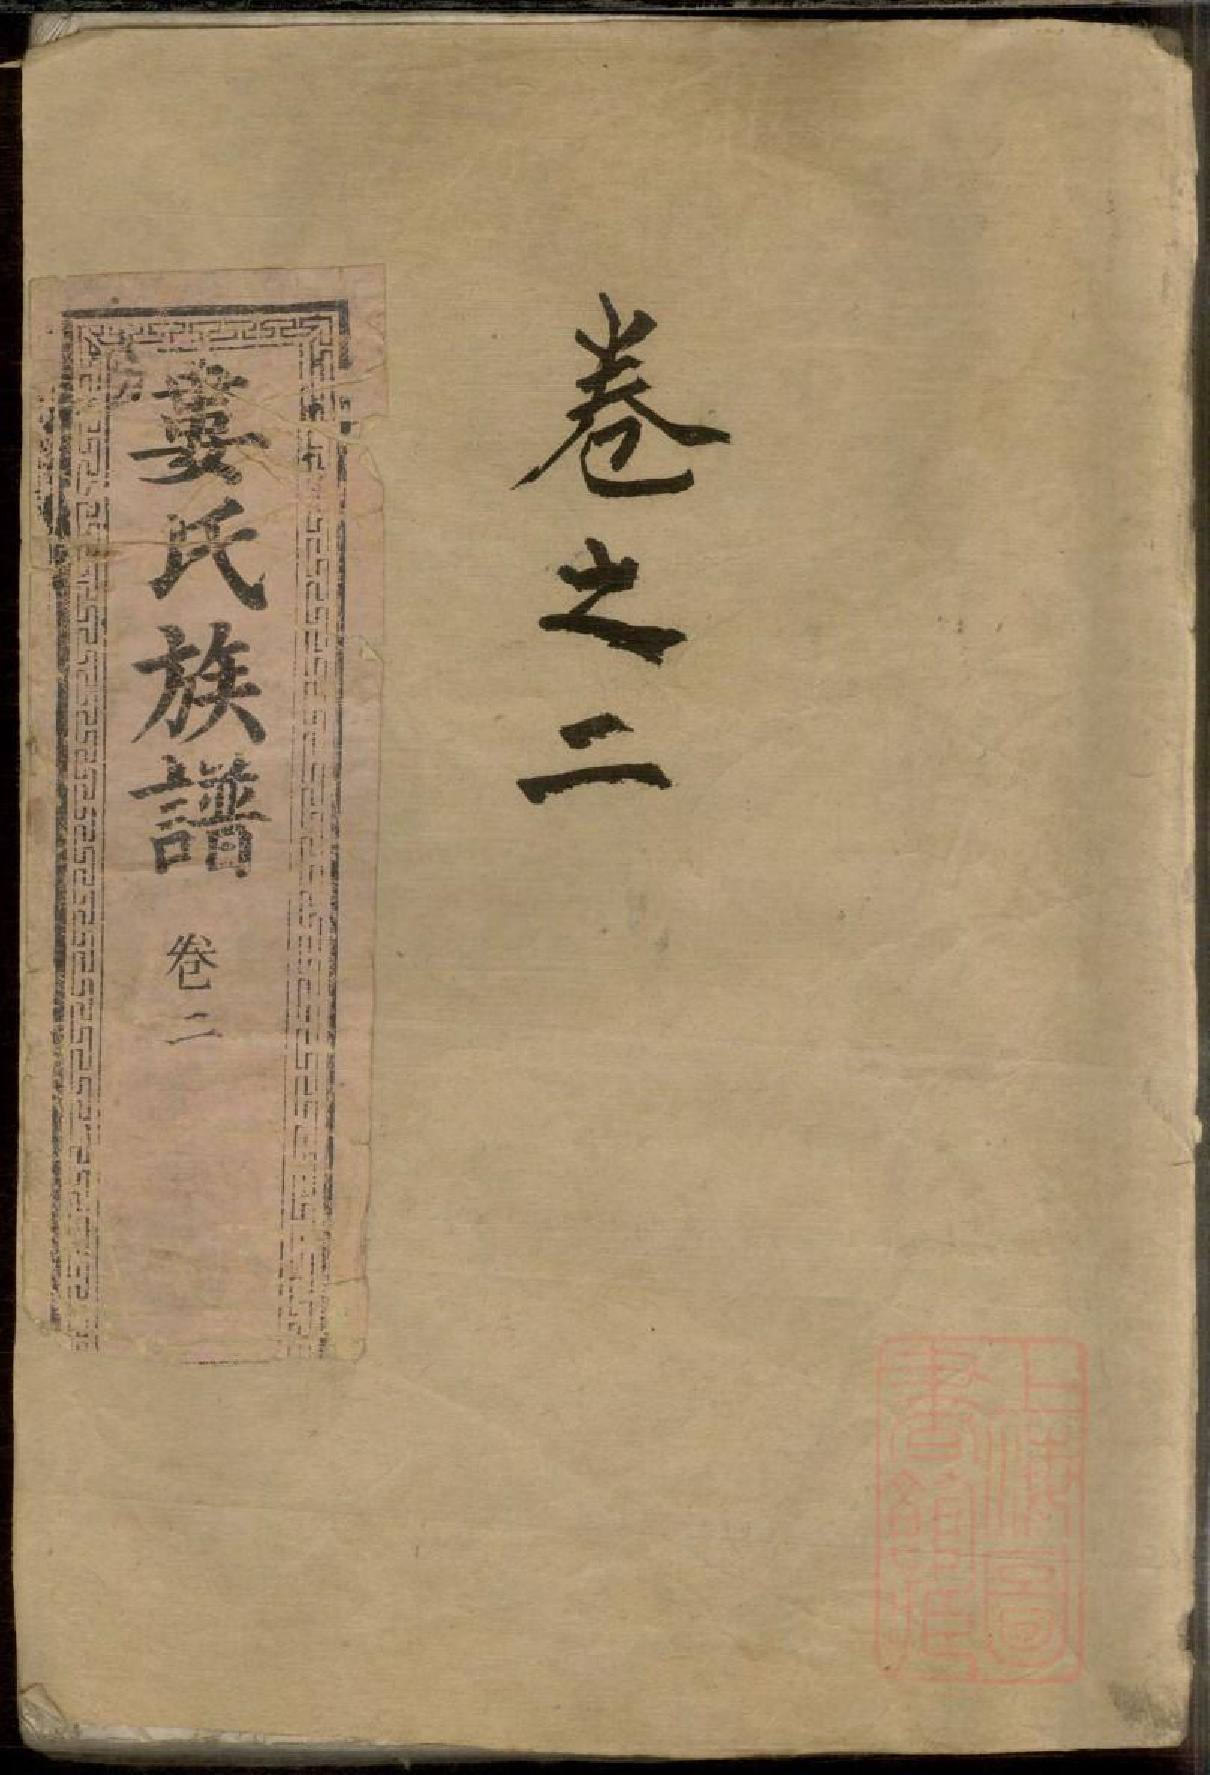 卷之二
婁氏族譜 卷二
上海圖
書館藏